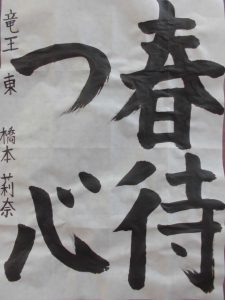 春待
つ心
竜王東 橋本莉奈